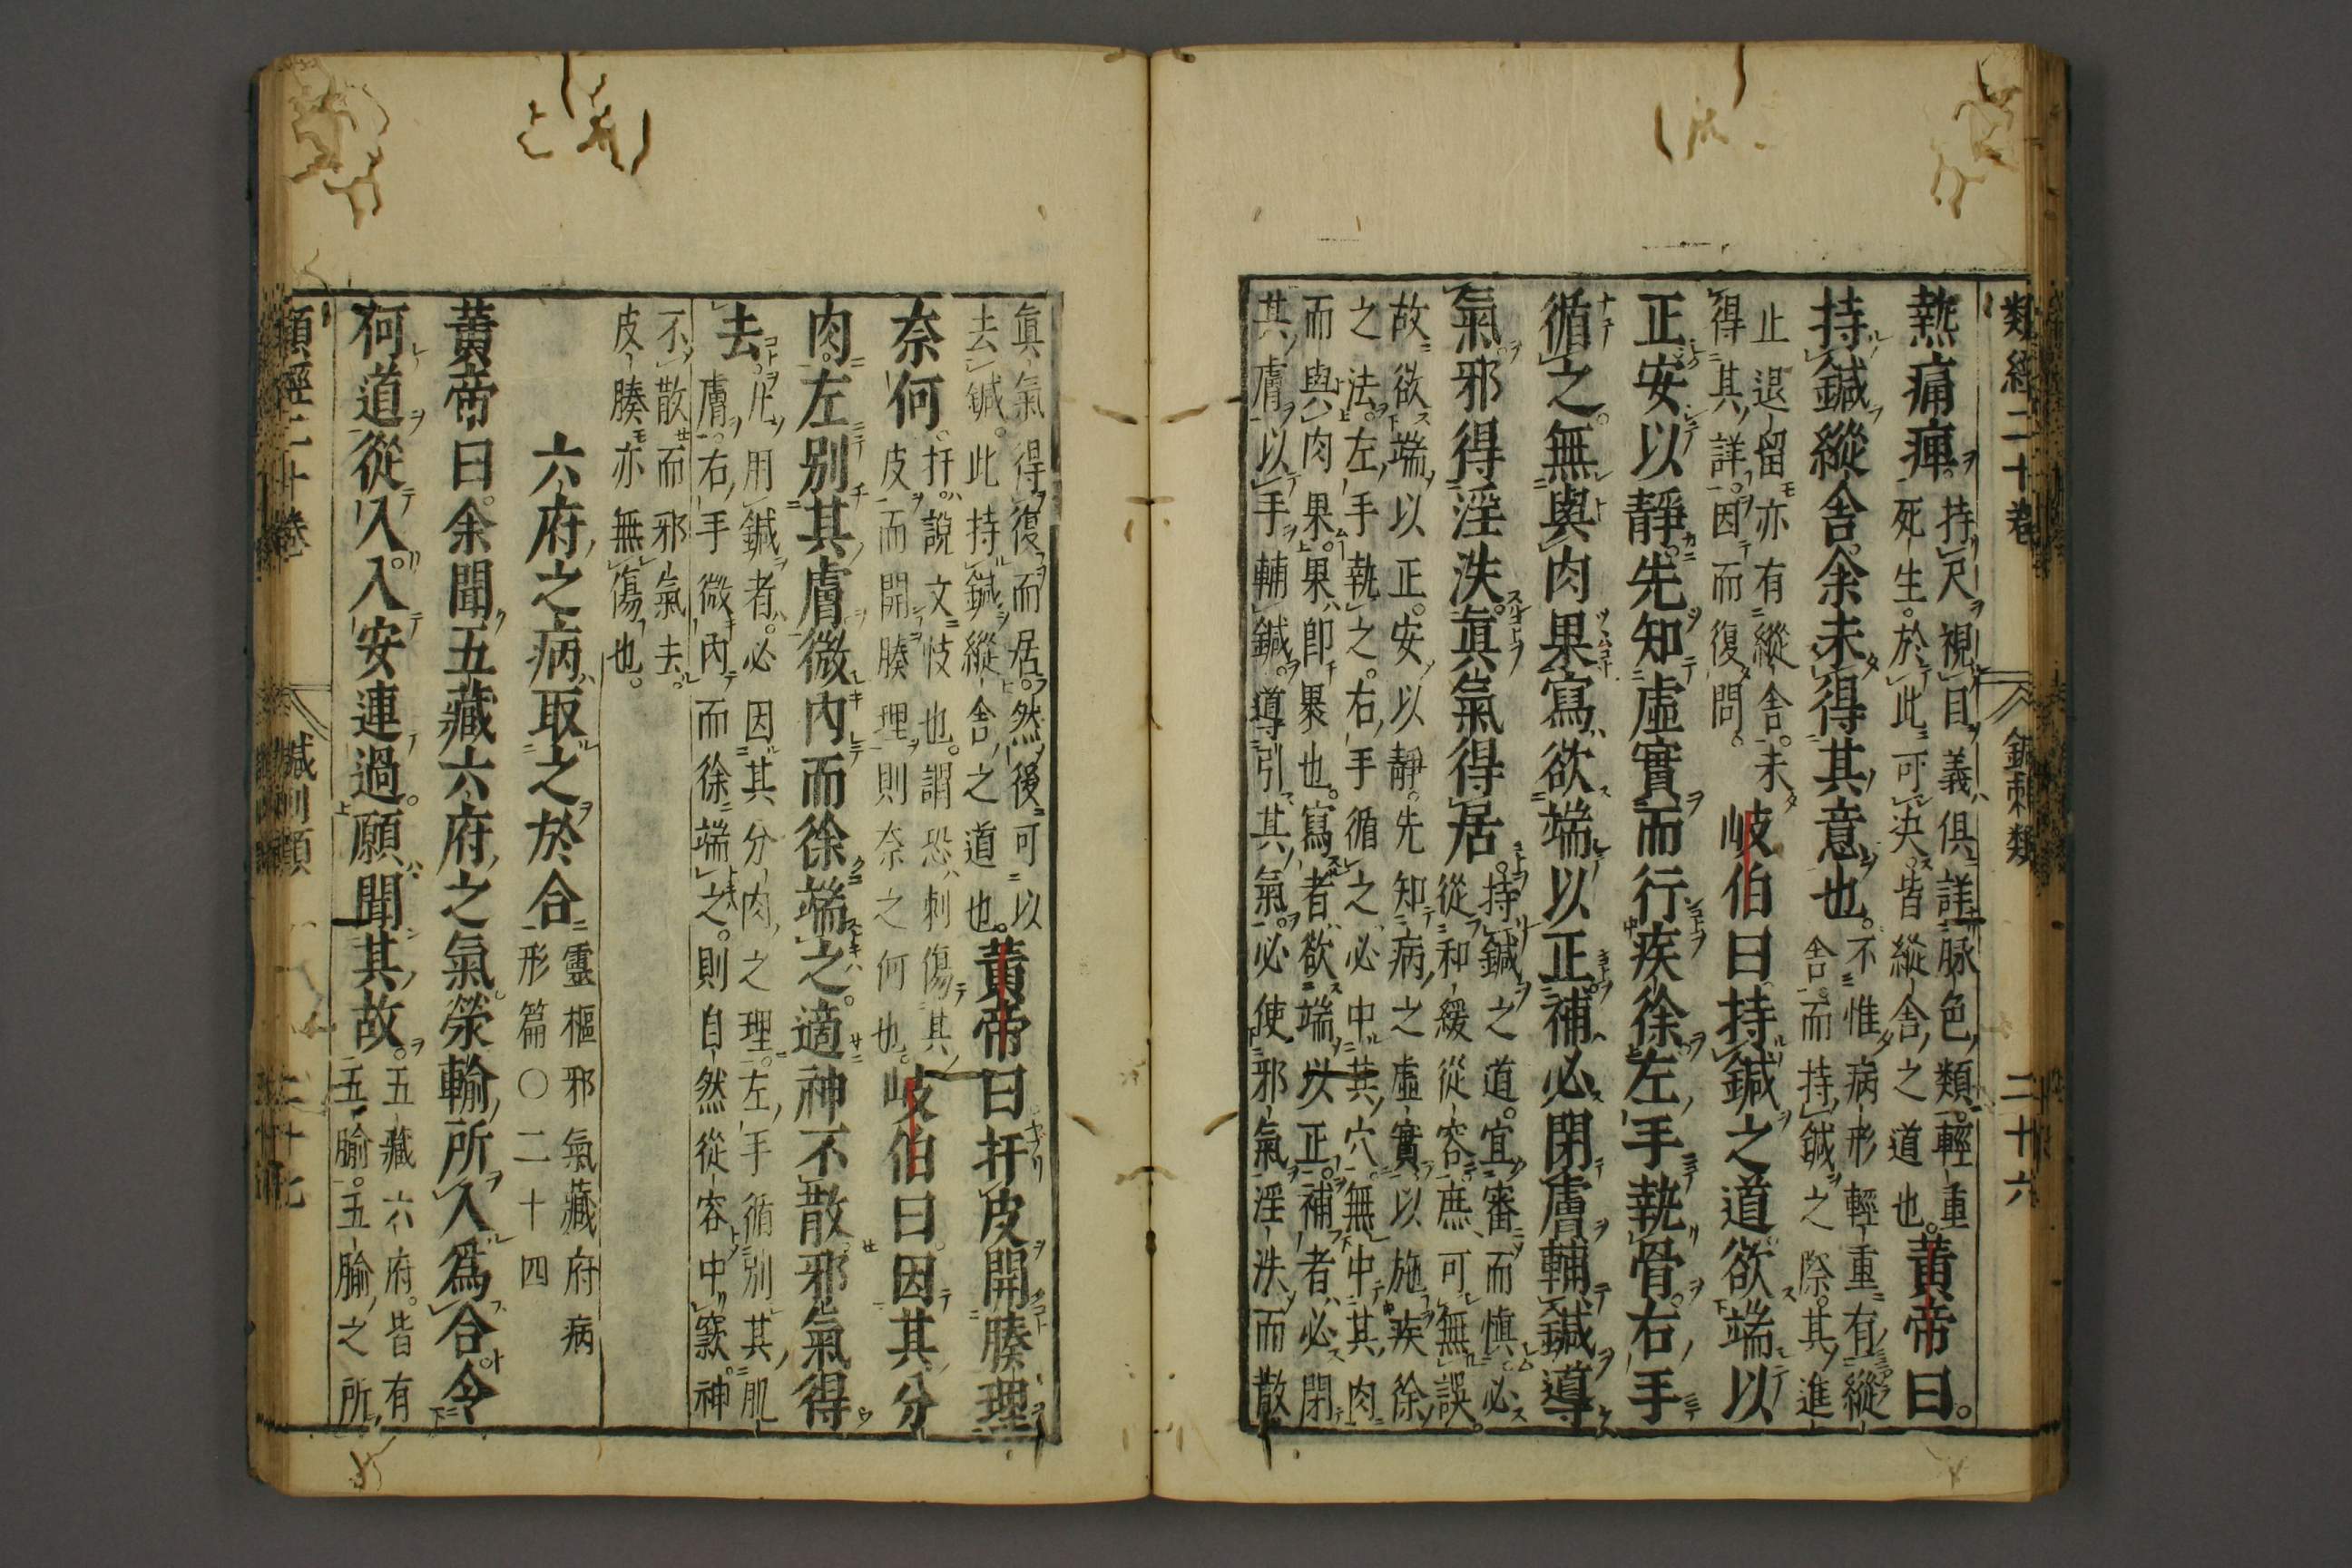 類經二十卷 鍼刺類 二十六
熱痛痺持尺視目義俱詳脉色類輕重
死生於此可决皆縱舍之道也黃帝曰
持鍼縱舍余未得其意也不惟病形輕重有縱
舍而持鍼之際其進
止退留亦有縱舍未
得其詳因而復問岐伯曰持鍼之道欲端以
正安以靜先知虛實而行疾徐左手執骨右手
循之無與肉果寫欲端以正補必閉膚輔鍼導
氣邪得淫泆眞氣得居持鍼之道宜審而愼必
從和緩從容庶可無誤
故欲端以正安以靜先知病之虛實以施疾徐
之法左手執之右手循之必中其穴無中其肉
而與肉果果卽裹也寫者欲端以正補者必閉
其膚以手輔鍼導引其氣必使邪氣淫泆而散
眞氣得復而居然後可以
去鍼此持鍼縱舍之道也黃帝曰扞皮開腠理
奈何扞說文忮也謂恐刺傷其
皮而開腠理則奈之何也岐伯曰因其分
肉左別其膚微內而徐端之適神不散邪氣得
去凡用鍼者必因其分肉之理左手循別其肌
膚右手微內而徐端之則自然從容中窾神
不散而邪氣去
皮腠亦無傷也
六府之病取之於合靈樞邪氣藏府病
形篇○二十四
黃帝曰余聞五藏六府之氣滎輸所入爲合令
何道從入入安連過願聞其故五藏六府皆有
五腧五腧之所
類經二十卷 鍼刺類 二十七